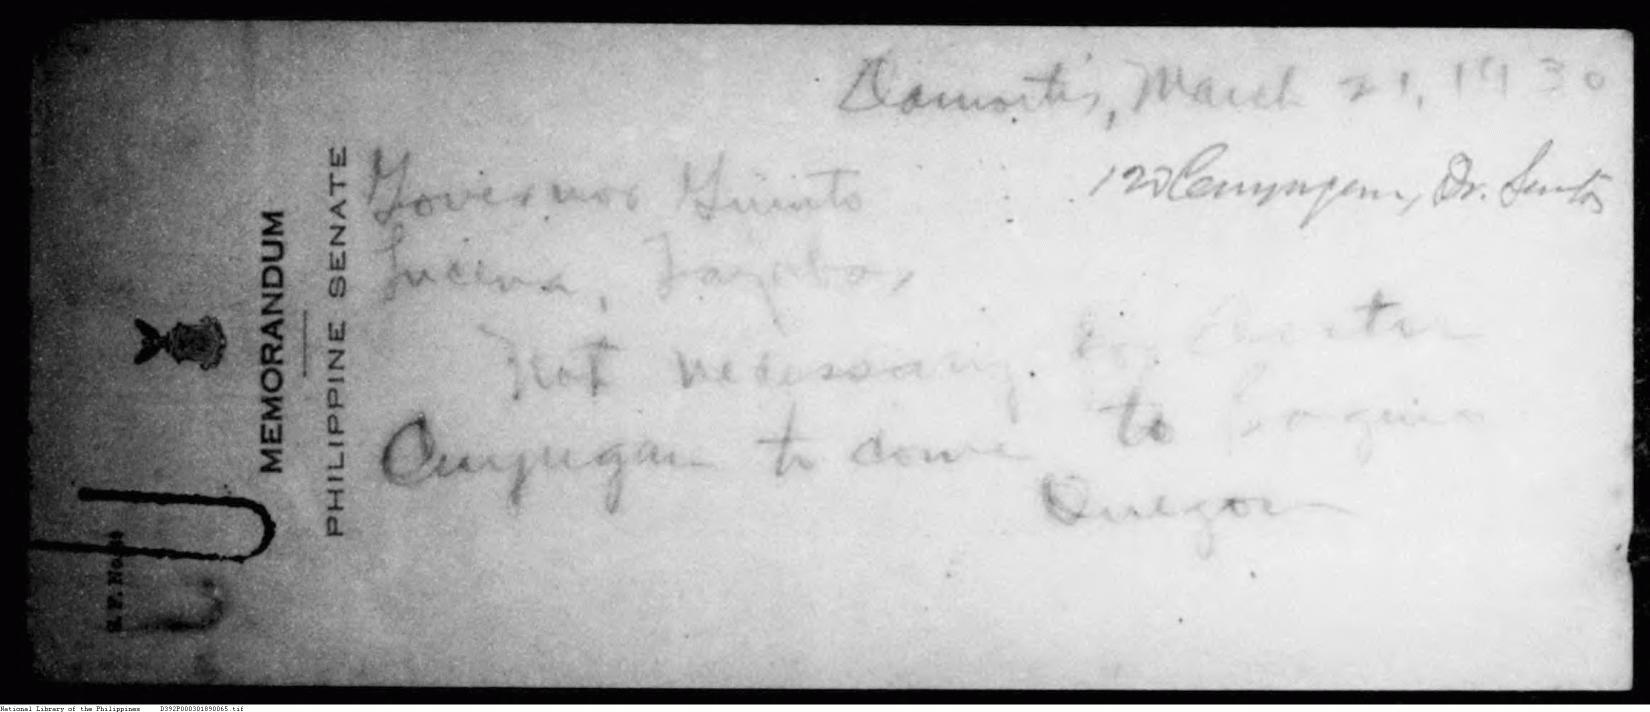 MEMORANDUM
PHILIPPINE SENATE
Damortis, March 21, 1930
Governor Guinto
Lucena, Tayabas
Not necessary Dr.
Cuyugan to come to Baguio
Quezon
National Library of the Philippines D392P000301890065.tif